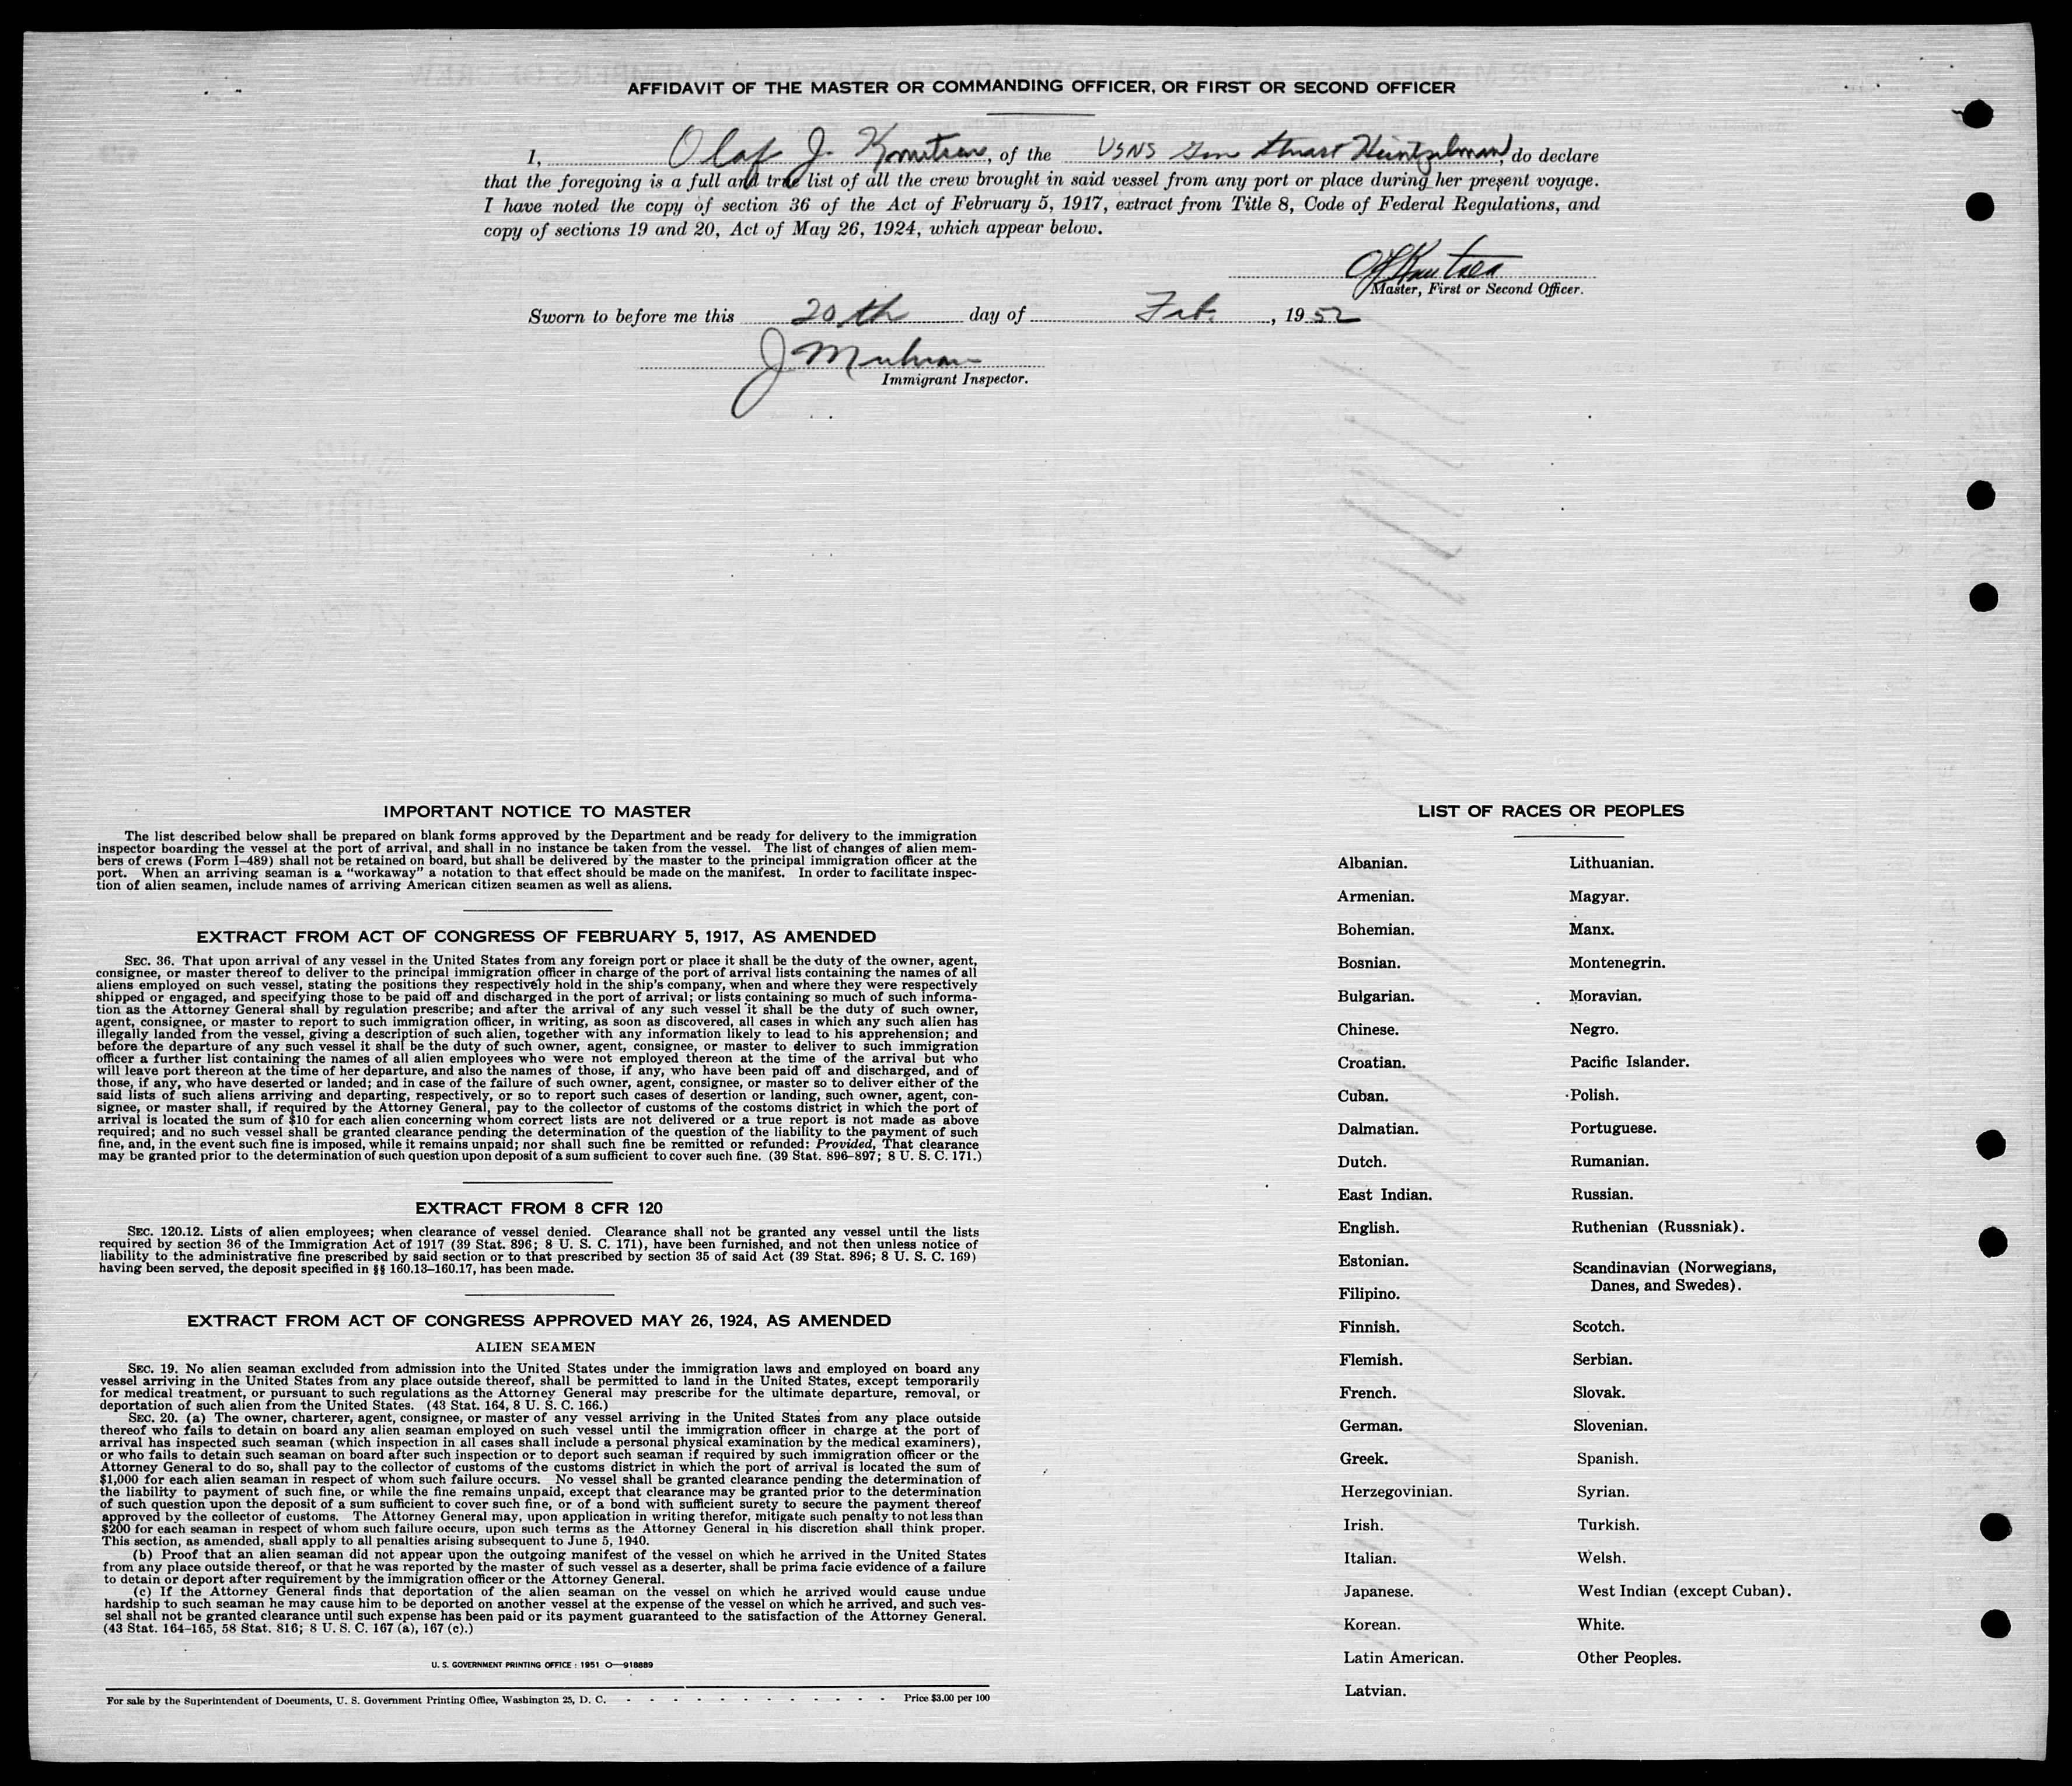 AFFIDAVIT OF THE MASTER OR COMMANDING OFFICER, OR FIRST OR SECOND OFFICER
I, Olaf J. Knutsen, of the USNS Gen Stuart Heintzelman, do declare
that the foregoing is a full and true list of all the crew brought in said vessel from any port or place during her present voyage.
I have noted the copy of section 36 of the Act of February 5, 1917, extract from Title 8, Code of Federal Regulations, and
copy of sections 19 and 20, Act of May 26, 1924, which appear below.
OJKnutsen
Master, First or Second Officer.
Sworn to before me this 20th day of Feb., 1952
J
Immigrant Inspector.
IMPORTANT NOTICE TO MASTER
The list described below shall be prepared on blank forms approved by the Department and be ready for delivery to the immigration
inspector boarding the vessel at the port of arrival, and shall in no instance be taken from the vessel. The list of changes of alien mem-
bers of crews (Form I–489) shall not be retained on board, but shall be delivered by the master to the principal immigration officer at the
port. When an arriving seaman is a “workaway” a notation to that effect should be made on the manifest. In order to facilitate inspec-
tion of alien seamen, include names of arriving American citizen seamen as well as aliens.
EXTRACT FROM ACT OF CONGRESS OF FEBRUARY 5, 1917, AS AMENDED
SEC. 36. That upon arrival of any vessel in the United States from any foreign port or place it shall be the duty of the owner, agent,
consignee, or master thereof to deliver to the principal immigration officer in charge of the port of arrival lists containing the names of all
aliens employed on such vessel, stating the positions they respectively hold in the ship's company, when and where they were respectively
shipped or engaged, and specifying those to be paid off and discharged in the port of arrival; or lists containing so much of such informa-
tion as the Attorney General shall by regulation prescribe; and after the arrival of any such vessel it shall be the duty of such owner,
agent, consignee, or master to report to such immigration officer, in writing, as soon as discovered, all cases in which any such alien has
illegally landed from the vessel, giving a description of such alien, together with any information likely to lead to his apprehension; and
before the departure of any such vessel it shall be the duty of such owner, agent, consignee, or master to deliver to such immigration
officer a further list containing the names of all alien employees who were not employed thereon at the time of the arrival but who
will leave port thereon at the time of her departure, and also the names of those, if any, who have been paid off and discharged, and of
those, if any, who have deserted or landed; and in case of the failure of such owner, agent, consignee, or master so to deliver either of the
said lists of such aliens arriving and departing, respectively, or so to report such cases of desertion or landing, such owner, agent, con-
signee, or master shall, if required by the Attorney General, pay to the collector of customs of the costoms district in which the port of
arrival is located the sum of $10 for each alien concerning whom correct lists are not delivered or a true report is not made as above
required; and no such vessel shall be granted clearance pending the determination of the question of the liability to the payment of such
fine, and, in the event such fine is imposed, while it remains unpaid; nor shall such fine be remitted or refunded: Provided, That clearance
may be granted prior to the determination of such question upon deposit of a sum sufficient to cover such fine. (39 Stat. 896–897; 8 U. S. C. 171.)
EXTRACT FROM 8 CFR 120
SEC. 120.12. Lists of alien employees; when clearance of vessel denied. Clearance shall not be granted any vessel until the lists
required by section 36 of the Immigration Act of 1917 (39 Stat. 896; 8 U. S. C. 171), have been furnished, and not then unless notice of
liability to the administrative fine prescribed by said section or to that prescribed by section 35 of said Act (39 Stat. 896; 8 U. S. C. 169)
having been served, the deposit specified in §§ 160.13–160.17, has been made.
EXTRACT FROM ACT OF CONGRESS APPROVED MAY 26, 1924, AS AMENDED
ALIEN SEAMEN
SEC. 19. No alien seaman excluded from admission into the United States under the immigration laws and employed on board any
vessel arriving in the United States from any place outside thereof, shall be permitted to land in the United States, except temporarily
for medical treatment, or pursuant to such regulations as the Attorney General may prescribe for the ultimate departure, removal, or
deportation of such alien from the United States. (43 Stat. 164, 8 U. S. C. 166.)
SEC. 20. (a) The owner, charterer, agent, consignee, or master of any vessel arriving in the United States from any place outside
thereof who fails to detain on board any alien seaman employed on such vessel until the immigration officer in charge at the port of
arrival has inspected such seaman (which inspection in all cases shall include a personal physical examination by the medical examiners),
or who fails to detain such seaman on board after such inspection or to deport such seaman if required by such immigration officer or the
Attorney General to do so, shall pay to the collector of customs of the customs district in which the port of arrival is located the sum of
$1,000 for each alien seaman in respect of whom such failure occurs. No vessel shall be granted clearance pending the determination of
the liability to payment of such fine, or while the fine remains unpaid, except that clearance may be granted prior to the determination
of such question upon the deposit of a sum sufficient to cover such fine, or of a bond with sufficient surety to secure the payment thereof
approved by the collector of customs. The Attorney General may, upon application in writing therefor, mitigate such penalty to not less than
$200 for each seaman in respect of whom such failure occurs, upon such terms as the Attorney General in his discretion shall think proper.
This section, as amended, shall apply to all penalties arising subsequent to June 5, 1940.
(b) Proof that an alien seaman did not appear upon the outgoing manifest of the vessel on which he arrived in the United States
from any place outside thereof, or that he was reported by the master of such vessel as a deserter, shall be prima facie evidence of a failure
to detain or deport after requirement by the immigration officer or the Attorney General.
(c) If the Attorney General finds that deportation of the alien seaman on the vessel on which he arrived would cause undue
hardship to such seaman he may cause him to be deported on another vessel at the expense of the vessel on which he arrived, and such ves-
sel shall not be granted clearance until such expense has been paid or its payment guaranteed to the satisfaction of the Attorney General.
(43 Stat. 164–165, 58 Stat. 816; 8 U. S. C. 167 (a), 167 (c).)
U. S. GOVERNMENT PRINTING OFFICE : 1951 O—918889
For sale by the Superintendent of Documents, U. S. Government Printing Office, Washington 25, D. C. - - - - - - - - - - - - Price $3.00 per 100
LIST OF RACES OR PEOPLES
Albanian.
Armenian.
Bohemian.
Bosnian.
Bulgarian.
Chinese.
Croatian.
Cuban.
Dalmatian.
Dutch.
East Indian.
English.
Estonian.
Filipino.
Finnish.
Flemish.
French.
German.
Greek.
Herzegovinian.
Irish.
Italian.
Japanese.
Korean.
Latin American.
Latvian.
Lithuanian.
Magyar.
Manx.
Montenegrin.
Moravian.
Negro.
Pacific Islander.
Polish.
Portuguese.
Rumanian.
Russian.
Ruthenian (Russniak).
Scandinavian (Norwegians,
Danes, and Swedes).
Scotch.
Serbian.
Slovak.
Slovenian.
Spanish.
Syrian.
Turkish.
Welsh.
West Indian (except Cuban).
White.
Other Peoples.